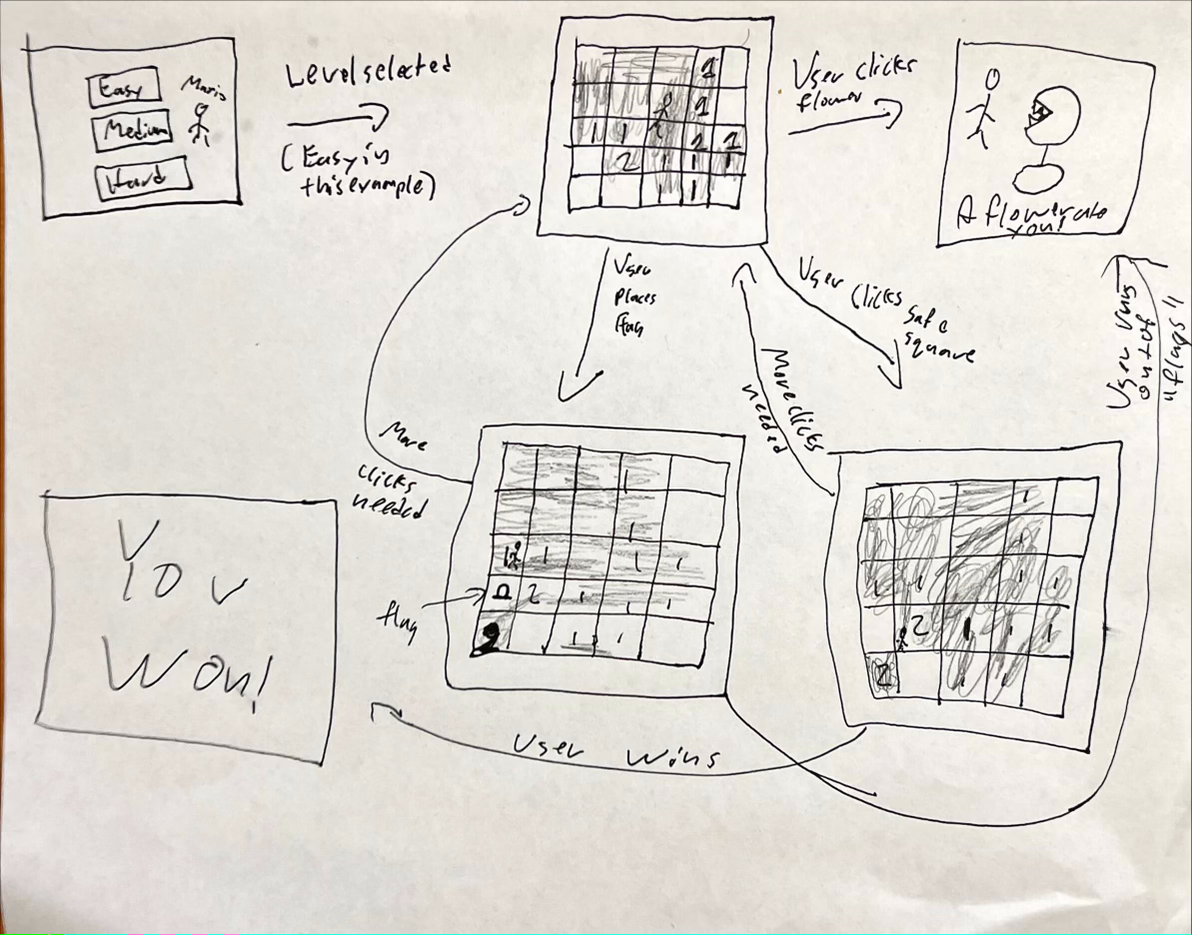 Easy
Mario
Medium
Hard
Level selected
(Easy in
this example)
1
1
1 1 2 1
2 1 1 1
1 1
User clicks
flower
A flower ate
you!
User
places
flag
User clicks
safe
square
More clicks
needed
More
clicks
needed
User runs
out of
"flags"
1
1
1 1 1 1
flag
2 1 1 1
1 1
1
1
1 1 1 1
2 1 1 1
2
You
Won!
User Wins